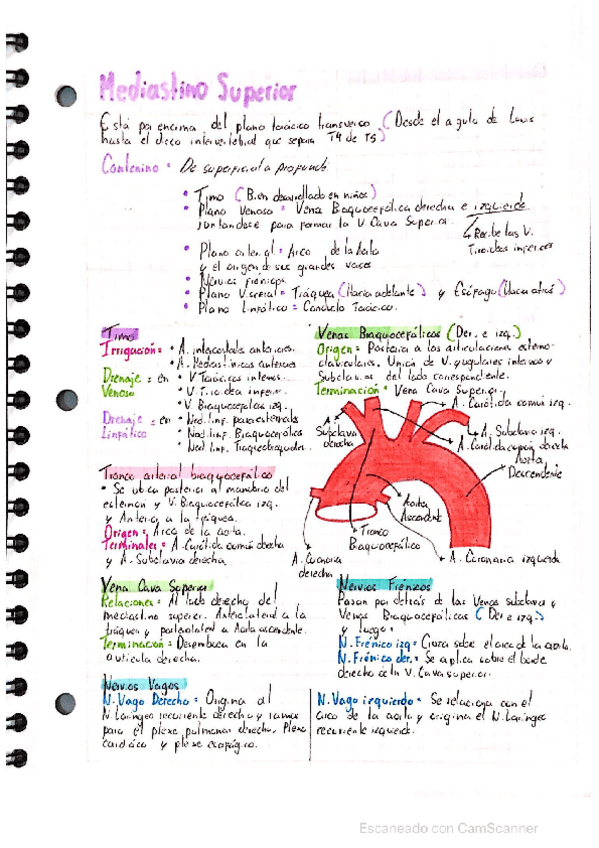 Mediastino Superior
Está por encima del plano torácico transverso (Desde el angulo de Louis
hasta el disco intervertebral que separa T4 de T5)
Contenino = De superficial a profundo
• Timo (Bien desarrollado en niños)
• Plano Venoso = Vena Braquocefálica derecha e izquierda
juntandose para formar la V. Cava Superior.
↳ Recibe las V.
Tiroideas inferiores
• Plano arterial = Arco de la Aorta
y el origen de sus grandes vasos
• Nervios frénicos.
• Plano Visceral = Tráquea (Hacia adelante) y Esófago (Hacia atrás)
• Plano Linfático = Conducto Torácico.
Timo
Irrigación = • A. intercostales anteriores.
• A. Mediastínicas anteriores
Drenaje = en • V. Torácicas internas.
Venoso • V. Tiroidea inferior.
• V. Braquocefálica izq.
Drenaje = en • Nod. Linf. paraesternales
Linfático • Nod. Linf. Braquocefálicos
• Nod. Linf. Traqueobronquiales
Venas Braquocefálicas (Der. e izq.)
Origen = Posterior a las articulaciones esterno-
claviculares. Unión de V. yugulares internas y
Subclavias del lado correspondiente.
Terminación = Vena Cava Superior.
A. Subclavia derecha
A. Carótida común izq.
A. Subclavia izq.
A. Carótida común derecha
Aorta Descendente
Aorta Ascendente
Tronco Braquocefálico
A. Coronaria derecha
A. Coronaria izquierda
Tronco arterial braquocefálico
• Se ubica posterior al manubrio del
esternon y V. Braquocefálica izq.
y Anterior a la tráquea.
Origen = Arco de la aorta.
Terminales = A. Carótida común derecha
y A. Subclavia derecha.
Vena Cava Superior
Relaciones = Al lado derecho del
mediastino superior. Anterolateral a la
tráquea y posterolateral a Aorta ascendente.
Terminación = Desemboca en la
auricula derecha.
Nervios Frénicos
Pasan por detrás de las Venas Subclavias y
Venas Braquocefálicas (Der e izq.)
y luego =
N. Frénico izq = Cruza sobre el arco de la aorta.
N. Frénico der. = Se aplica sobre el borde
derecho de la V. Cava superior.
Nervios Vagos
N. Vago Derecho = Origina al
N. Laringeo recurrente derecho y ramos
para el plexo pulmonar derecho, Plexo
cardíaco y plexo esofágico.
N. Vago izquierdo = Se relaciona con el
arco de la aorta y origina el N. Laringeo
recurrente izquierdo.
Escaneado con CamScanner